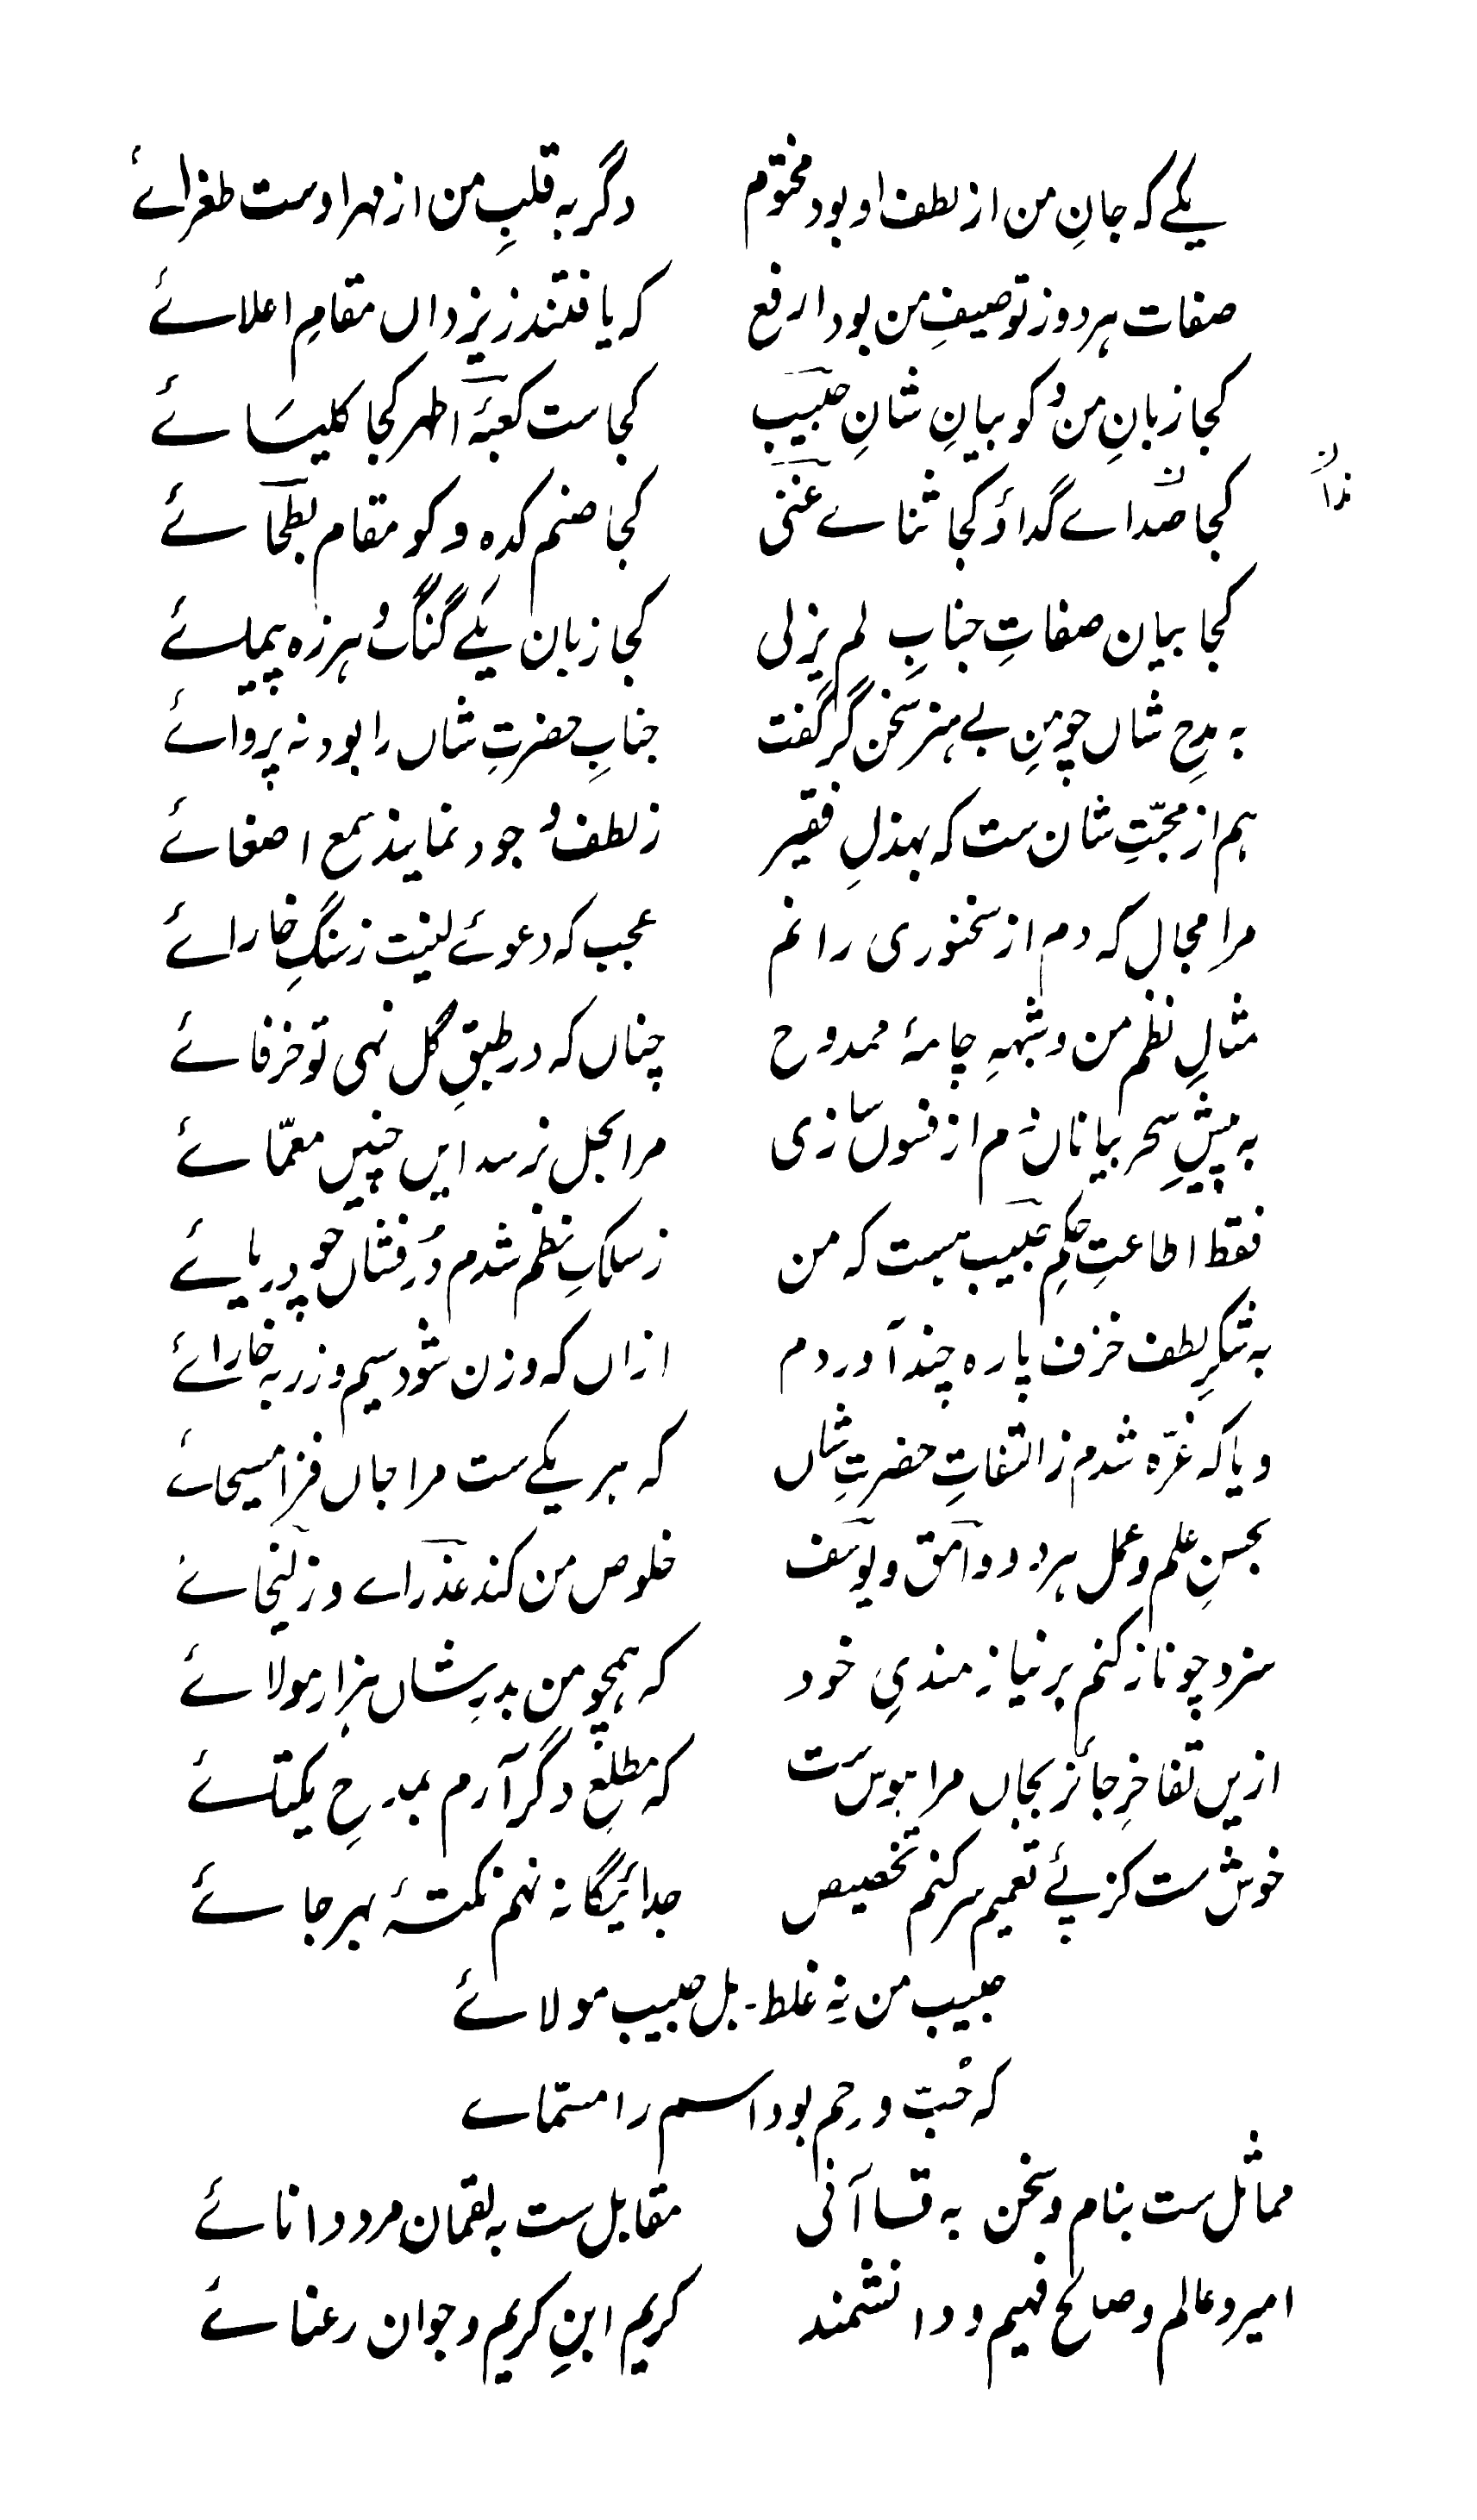 یکے کہ جانِ من از لطف او بود مختوم دگر بہ قلبِ من از مہر اوست طغرائے
صفات ہر دو ز توصیفِ من بود ارفع کہ یافتند ز یزداں مقامِ اعلائے
کجا زبانِ من و کو بیانِ شانِ حبیب کجاست کعبۂ اطہر کجا کلیسائے
کجا صدائے گدا و کجا ثنائے غنی کجا صنم کدہ و کو مقام بطحائے
کجا بیان صفاتِ جنابِ لم یزلی کجا زبان یکے گنگ ہرزہ پیمائے
بہ مدحِ شاں چو من بے ہنر سخن گر گفت جنابِ حضرتِ شاں را بود نہ پروائے
ہم از محبّتِ شان ست کہ بہذلِ فقیر ز لطف و جود نمایند سمع اصغائے
مرا مجال کہ دم از سخنوری رانم عجب کہ دعوئے لینت ز سنگِ خارائے
مثالِ نظم من و شبہِ جامۂ ممدوح چناں کہ در طبقِ گل نہی تو خرفائے
بہ پیشِ سحر بیانان دم از فسوں سازی مرا بجل نرسد ایں چنیں معمّائے
فقط اطاعتِ حکمِ حبیب ہست کہ من ز سلکِ نظم شدم دُر فشاں چو دریائے
بہ شکرِ لطف خزف پارہ چند آوردم ازاں کہ وزن شود سیم و زر بہ خارائے
و یا کہ غرّہ شدم ز التفاتِ حضرتِ شاں کہ ہر یکے ست مرا جاں فزا مسیحائے
بحسنِ علم و عمل ہر دو وامق و یوسف خلوص من کند عذرائے و زلیخائے
سزد چو ناز کنم بر نیاز مندیِ خود کہ ہمچو من بدرِ شاں ہزار مولائے
ازیں تفاخرِ جائز بجاں مرا ہوس ست کہ مطلعِ دگر آرم بمدحِ یکتائے
خوش ست کز پئے تعمیم سر کنم تخصیص جداگانہ نہم نکتۂ بہر جائے
حبیب من نہ غلط۔ بل حبیب مولائے
کہ حُبّ و رحم بود اسم را مسمّائے
مماثل ست بنام و سخن بہ قاآنی مقابل ست بہ لقمان مرد دانائے
امیر و عالم و صالح فہیم و دانشمند کریم ابنِ کریم و جوان رعنائے